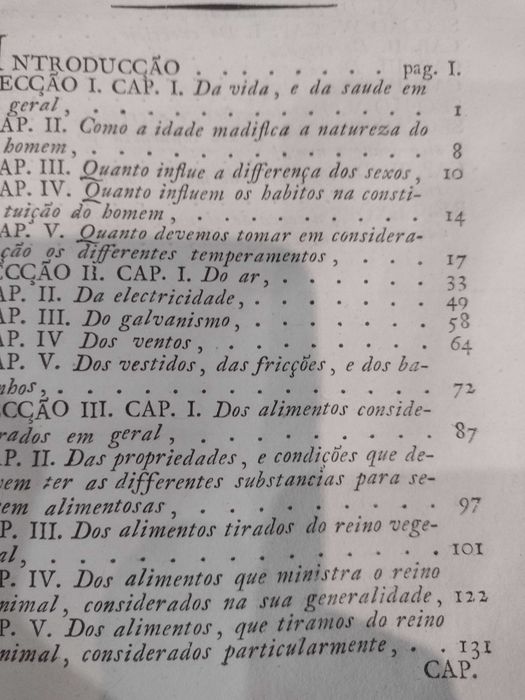 INTRODUCÇÃO . . . . . . . pag. I.
ECÇÃO I. CAP. I. Da vida, e da saude em
geral, . . . . . . . . . . . . . 1
AP. II. Como a idade madifica a natureza do
homem, . . . . . . . . . . . . . 8
AP. III. Quanto influe a differença dos sexos, 10
AP. IV. Quanto influem os habitos na consti-
tuição do homem, . . . . . . . . . 14
AP. V. Quanto devemos tomar em considera-
ção os differentes temperamentos, . . . . 17
ECÇÃO II. CAP. I. Do ar, . . . . . . . 33
AP. II. Da electricidade, . . . . . . . . 49
AP. III. Do galvanismo, . . . . . . . . 58
AP. IV Dos ventos, . . . . . . . . . 64
AP. V. Dos vestidos, das fricções, e dos ba-
nhos, . . . . . . . . . . . . . . 72
ECÇÃO III. CAP. I. Dos alimentos conside-
rados em geral, . . . . . . . . . . 87
AP. II. Das propriedades, e condições que de-
vem ter as differentes substancias para se-
rem alimentosas, . . . . . . . . . 97
P. III. Dos alimentos tirados do reino vege-
al, . . . . . . . . . . . . . . . 101
P. IV. Dos alimentos que ministra o reino
nimal, considerados na sua generalidade, 122
P. V. Dos alimentos, que tiramos do reino
nimal, considerados particularmente, . . 131
CAP.